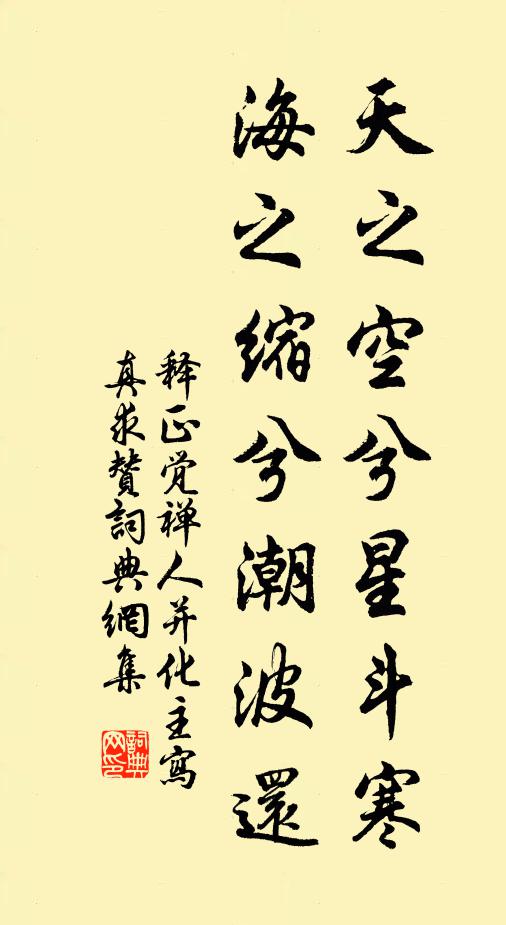 天之空兮星斗寒
海之缩兮潮波還
释正觉禅人并化主寫
真求赞詞典網集
詞典网印